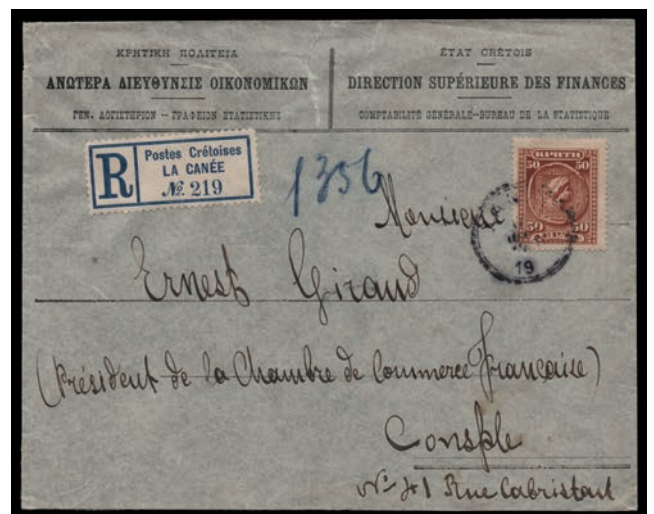 ΚΡΗΤΙΚΗ ΠΟΛΙΤΕΙΑ
ΑΝΩΤΕΡΑ ΔΙΕΥΘΥΝΣΙΣ ΟΙΚΟΝΟΜΙΚΩΝ
ΓΕΝ. ΛΟΓΙΣΤΗΡΙΟΝ – ΓΡΑΦΕΙΟΝ ΣΤΑΤΙΣΤΙΚΗΣ
ÉTAT CRÉTOIS
DIRECTION SUPÉRIEURE DES FINANCES
COMPTABILITÉ GÉNÉRALE–BUREAU DE LA STATISTIQUE
R
Postes Crétoises
LA CANÉE
№. 219
1356
ΚΡΗΤΗ
50 50
50 50
19
Monsieur
Ernest Giraud
(Président de la Chambre de Commerce Française)
Consple
No 41 Rue Cabristant